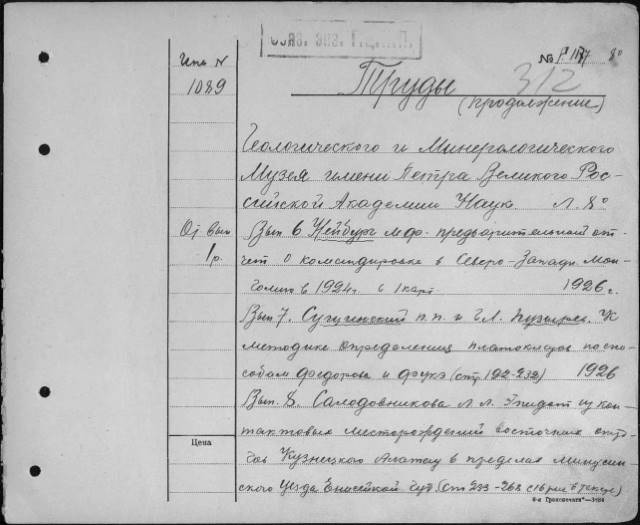 Обяз. экз. Г.Ц.К.П.
Инв N
1089
№ Р. 1187 8°
312
Труды
(продолжение)
Геологического и Минерологического
Музея имени Петра Великого Рос-
сийской Академии Наук. Л. 8°
От. вып
1 р.
Вып 6 Нейбург М.Ф. предварительный от-
чет о командировке в Северо-Западн. Мон-
голию в 1924г. с 1 карт. 1926 г.
Вып 7. п.п. и Г.Л. К
методике определения плагиоклазов по спо-
собам Федорова и Фукэ (стр 192-232) 1926
Вып. 8. Салодовникова Л. Л. Эпидот из кон-
тактовых месторождений восточных отро-
гов Кузнецкого Алатау в пределах Минусин-
ского уезда Енисейской Губ (Стр 233-268 с 16 рис
Цена
6-я Гринпечать"—3484